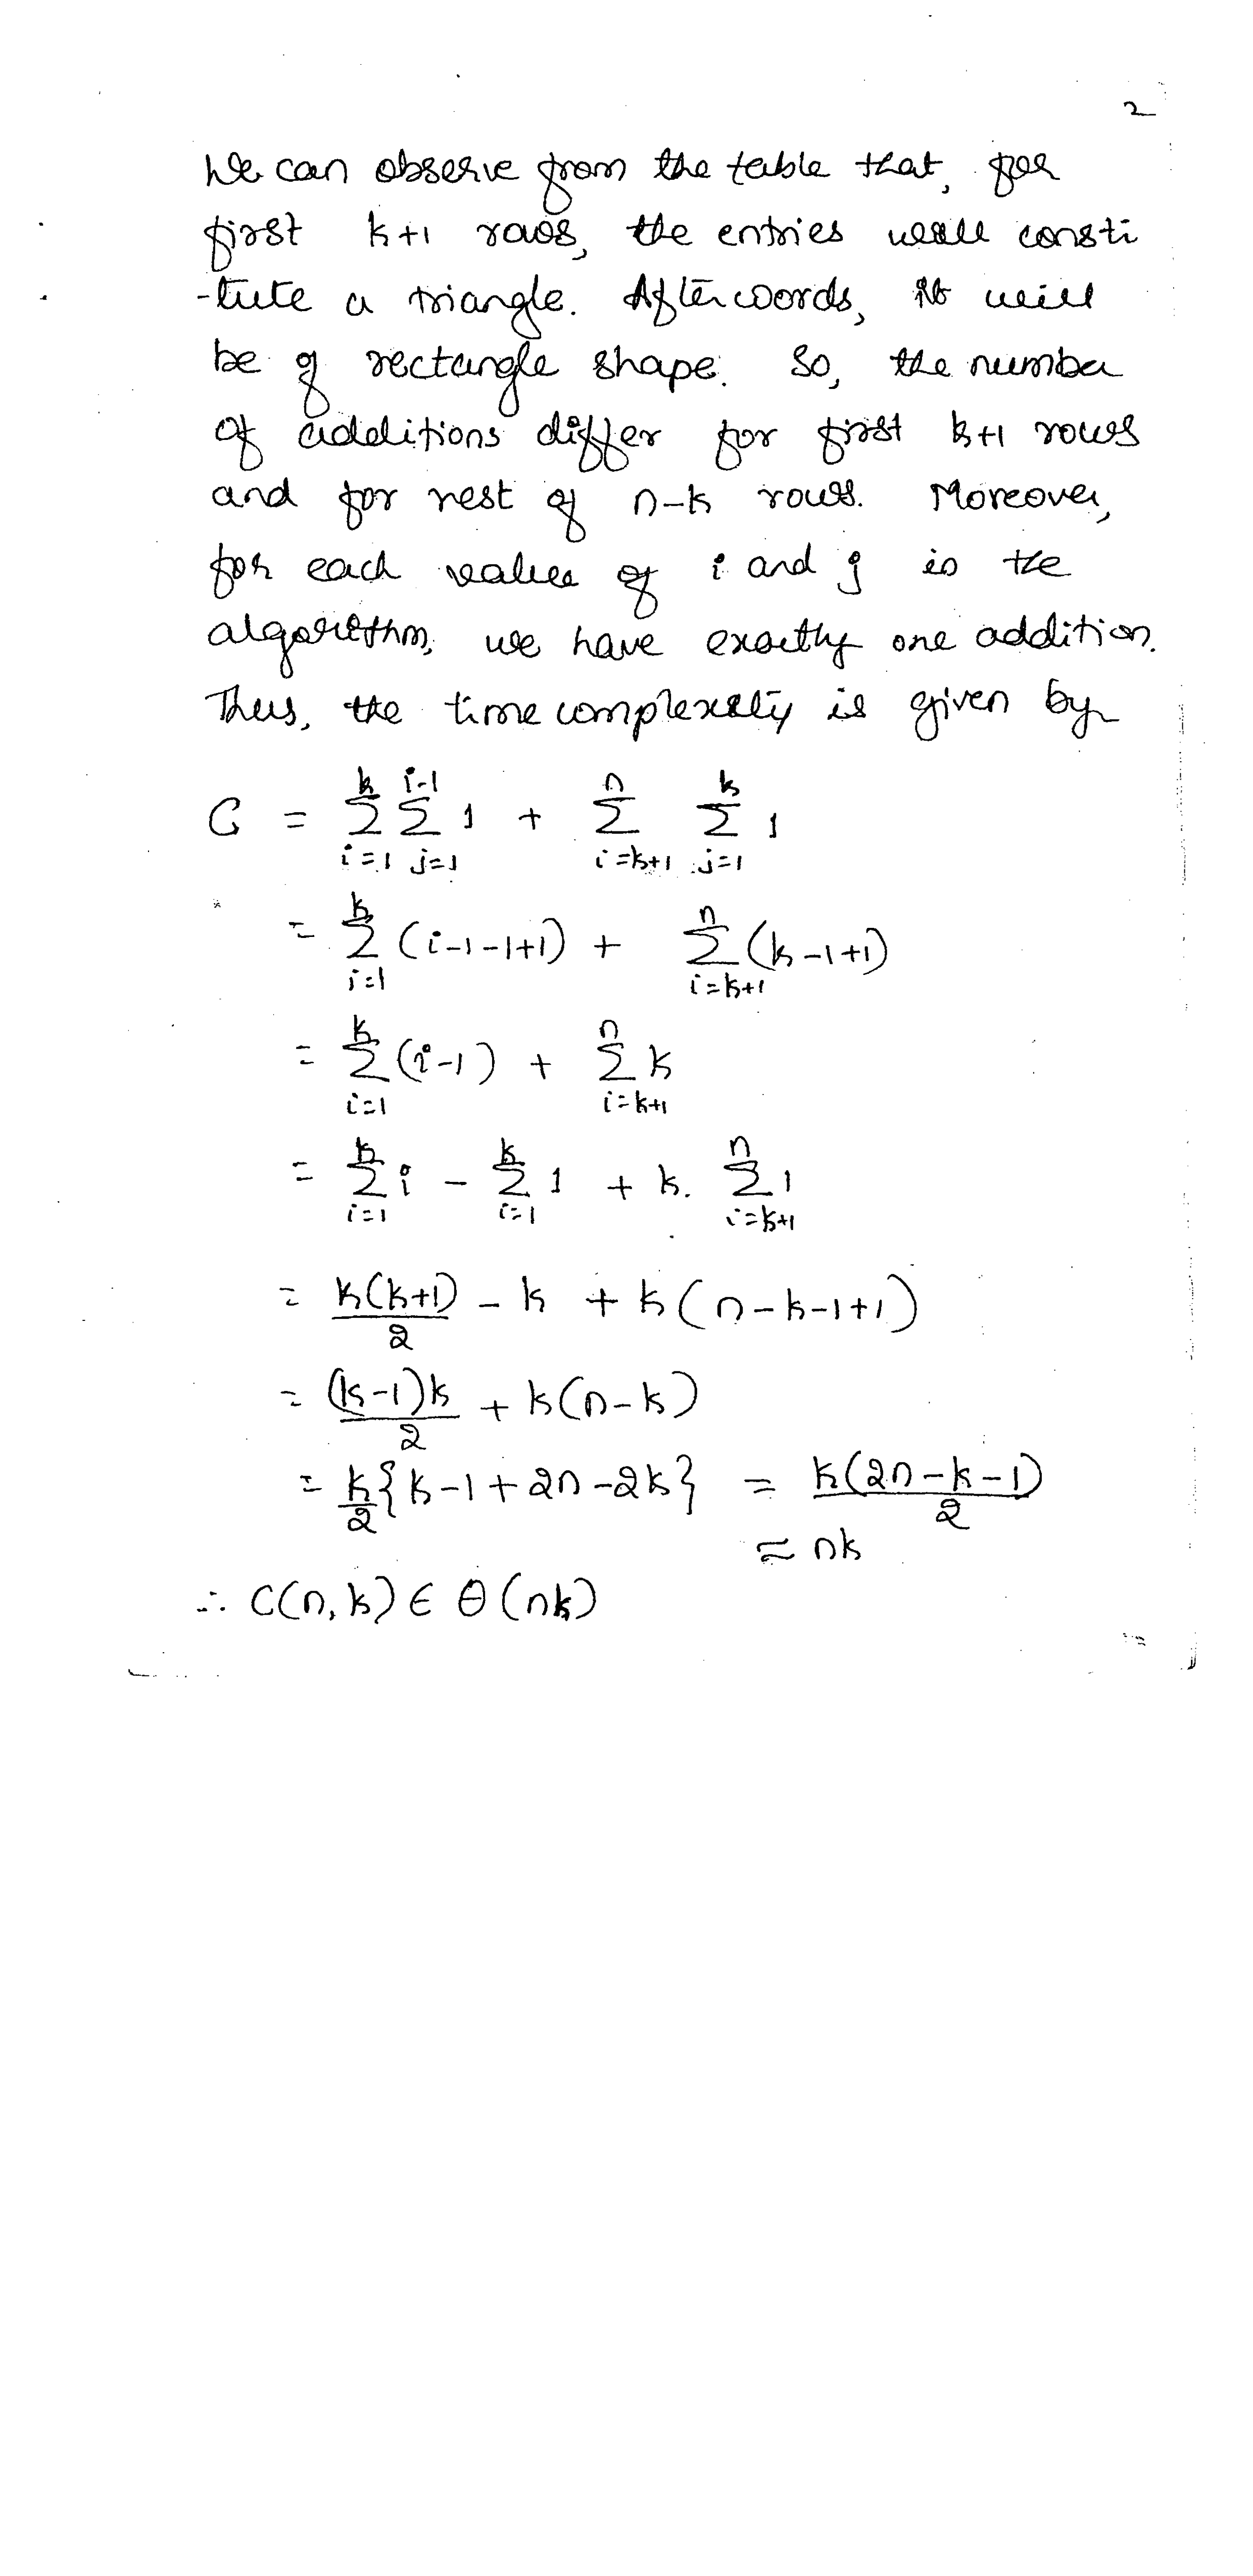 2
We can observe from the table that, for
first k+1 rows, the entries will consti
-tute a triangle. Afterwords, it will
be of rectangle shape. So, the number
of additions differ for first k+1 rows
and for rest of n-k rows. Moreover,
for each value of i and j is the
algorithm, we have exactly one addition.
Thus, the time complexity is given by
C = \sum_{i=1}^{k} \sum_{j=1}^{i-1} 1 + \sum_{i=k+1}^{n} \sum_{j=1}^{k} 1
= \sum_{i=1}^{k} (i-1-1+1) + \sum_{i=k+1}^{n} (k-1+1)
= \sum_{i=1}^{k} (i-1) + \sum_{i=k+1}^{n} k
= \sum_{i=1}^{k} i - \sum_{i=1}^{k} 1 + k. \sum_{i=k+1}^{n} 1
= \frac{k(k+1)}{2} - k + k(n-k-1+1)
= \frac{(k-1)k}{2} + k(n-k)
= \frac{k}{2}{k-1+2n-2k} = \frac{k(2n-k-1)}{2}
≈ nk
∴ C(n,k) ∈ Θ(nk)